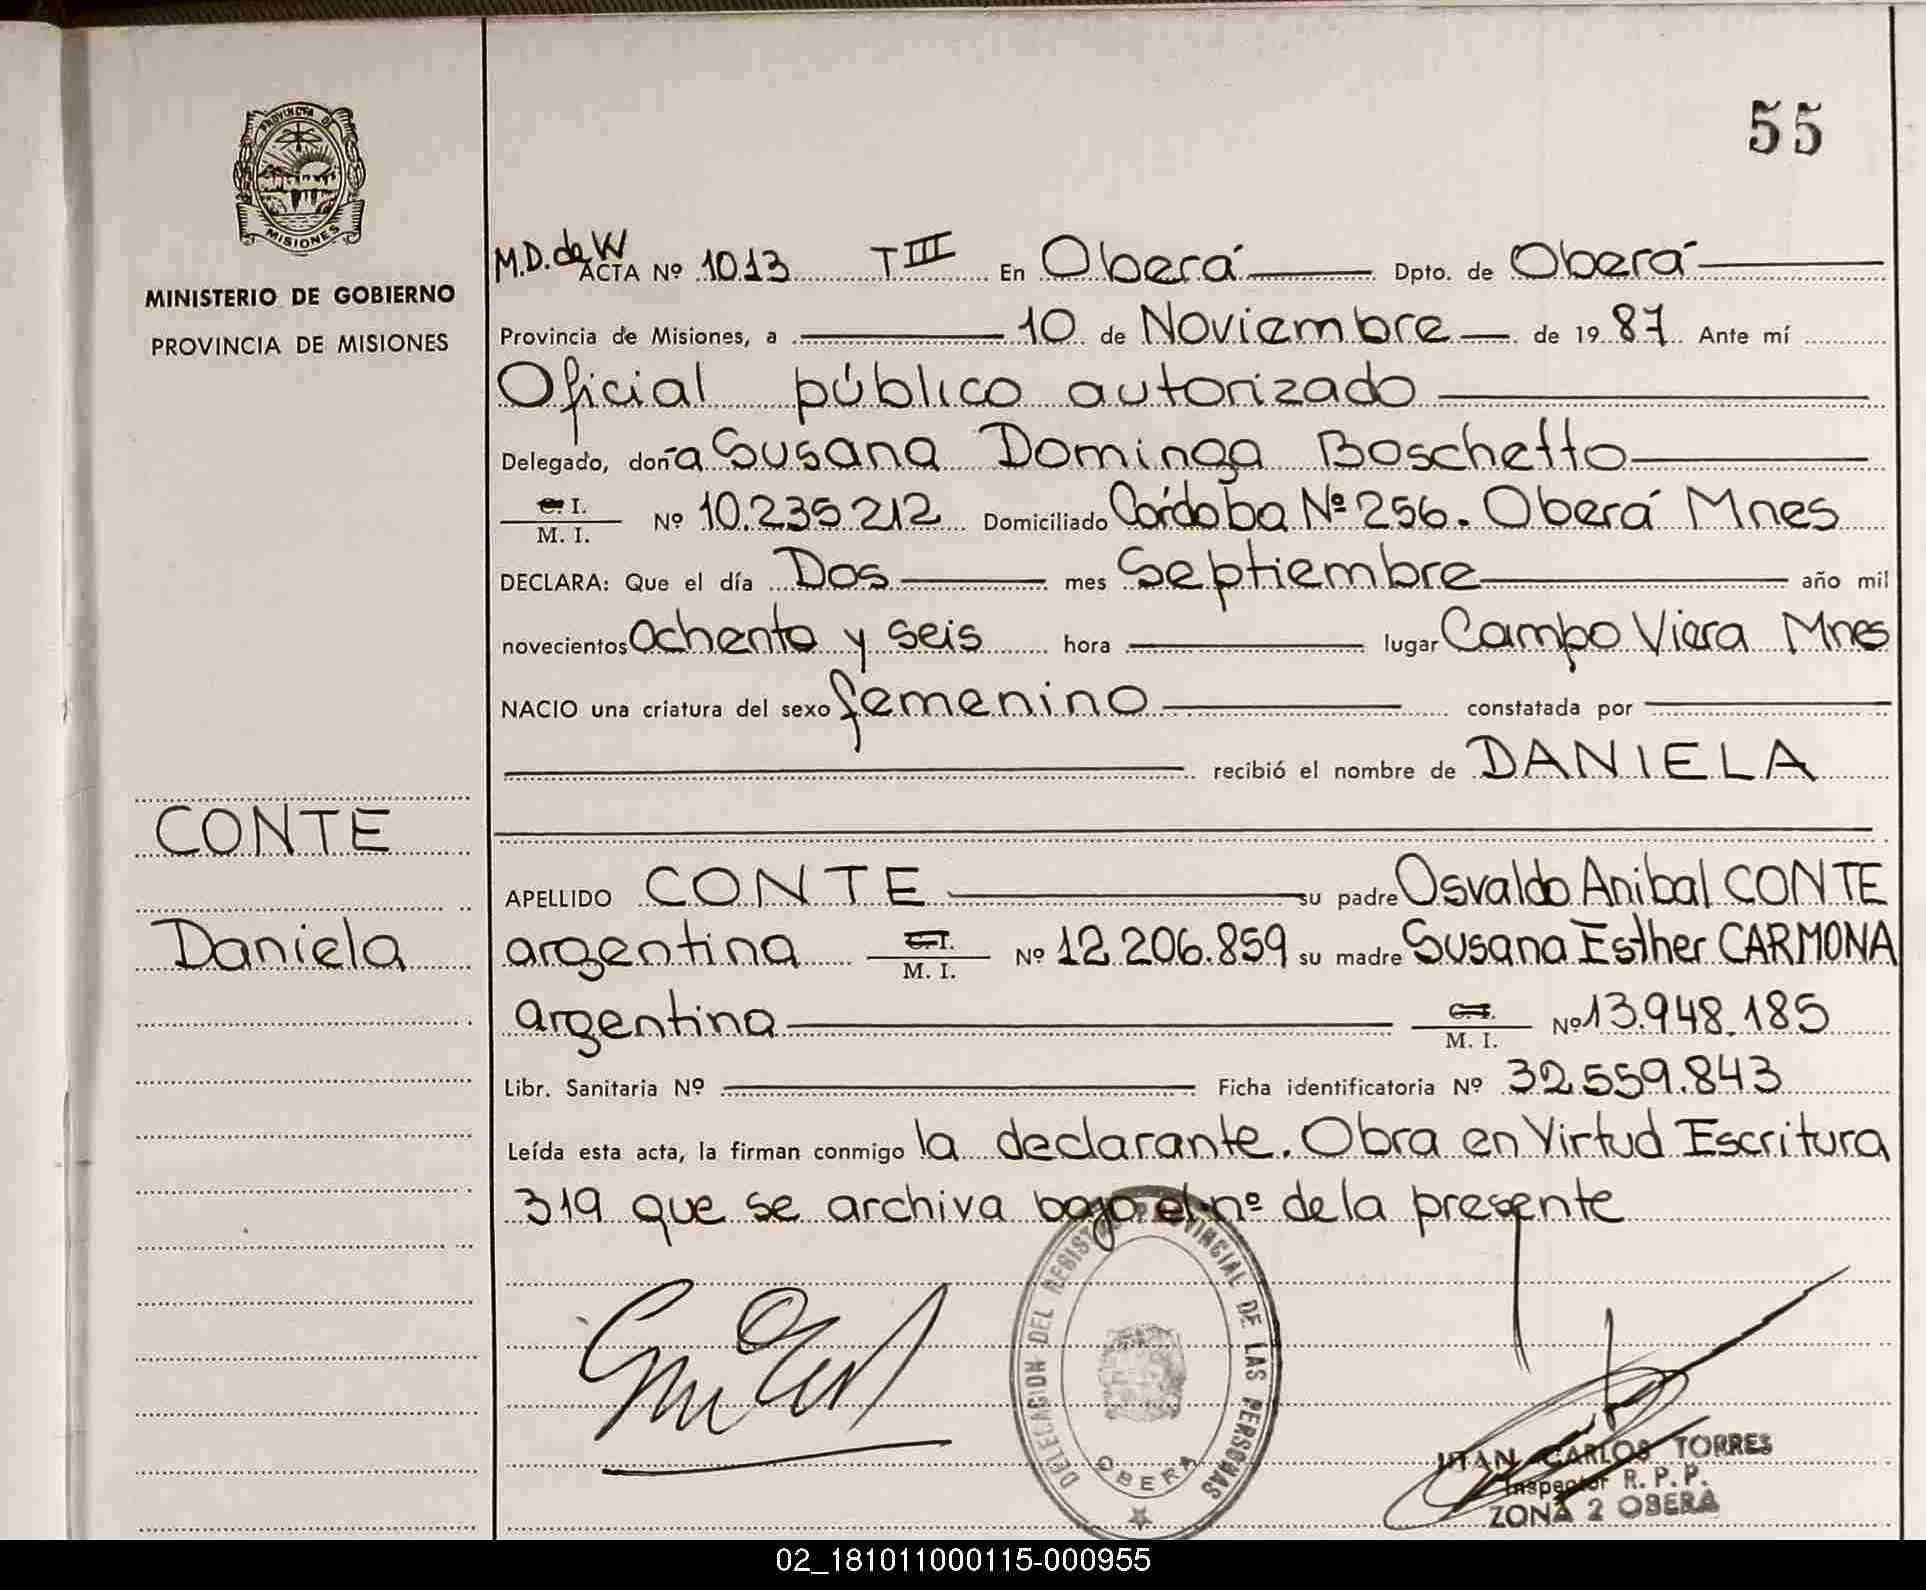 PROVINCIA DE
MISIONES
MINISTERIO DE GOBIERNO
PROVINCIA DE MISIONES
55
M.D. de W
ACTA Nº 1013 T III En Oberá Dpto. de Oberá
Provincia de Misiones, a 10 de Noviembre de 1987 Ante mí
Oficial público autorizado
Delegado, doña Susana Dominga Boschetto
C. I.
M. I. Nº 10.235.212 Domiciliado Córdoba Nº 256. Oberá Mnes
DECLARA: Que el día Dos mes Septiembre año mil
novecientos ochenta y seis hora lugar Campo Viera Mnes
NACIO una criatura del sexo femenino constatada por
recibió el nombre de DANIELA
CONTE
Daniela
APELLIDO CONTE su padre Osvaldo Anibal CONTE
argentina C. I. M. I. Nº 12.206.859 su madre Susana Esther CARMONA
argentina C. I. M. I. Nº 13.948.185
Libr. Sanitaria Nº Ficha identificatoria Nº 32.559.843
Leída esta acta, la firman conmigo la declarante. Obra en Virtud Escritura
319 que se archiva bajo el nº de la presente
DELEGACION DEL REGISTRO PROVINCIAL DE LAS PERSONAS
OBERA
JUAN CARLOS TORRES
Inspector R. P. P.
ZONA 2 OBERA
02_181011000115-000955